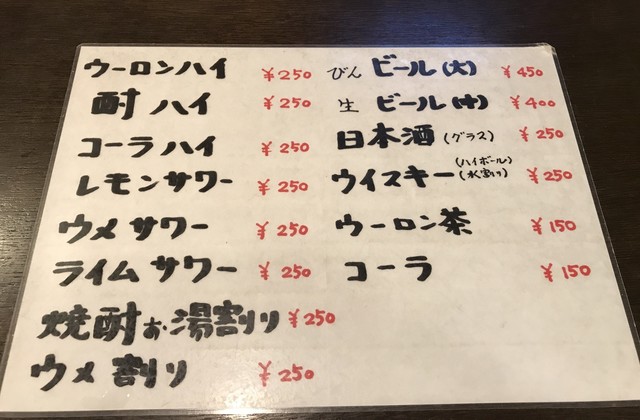 ウーロンハイ ¥250
酎ハイ ¥250
コーラハイ ¥250
レモンサワー ¥250
ウメサワー ¥250
ライムサワー ¥250
焼酎お湯割り ¥250
ウメ割り ¥250
びんビール(大) ¥450
生ビール(中) ¥400
日本酒(グラス) ¥250
ウイスキー(ハイボール)(水割り) ¥250
ウーロン茶 ¥150
コーラ ¥150